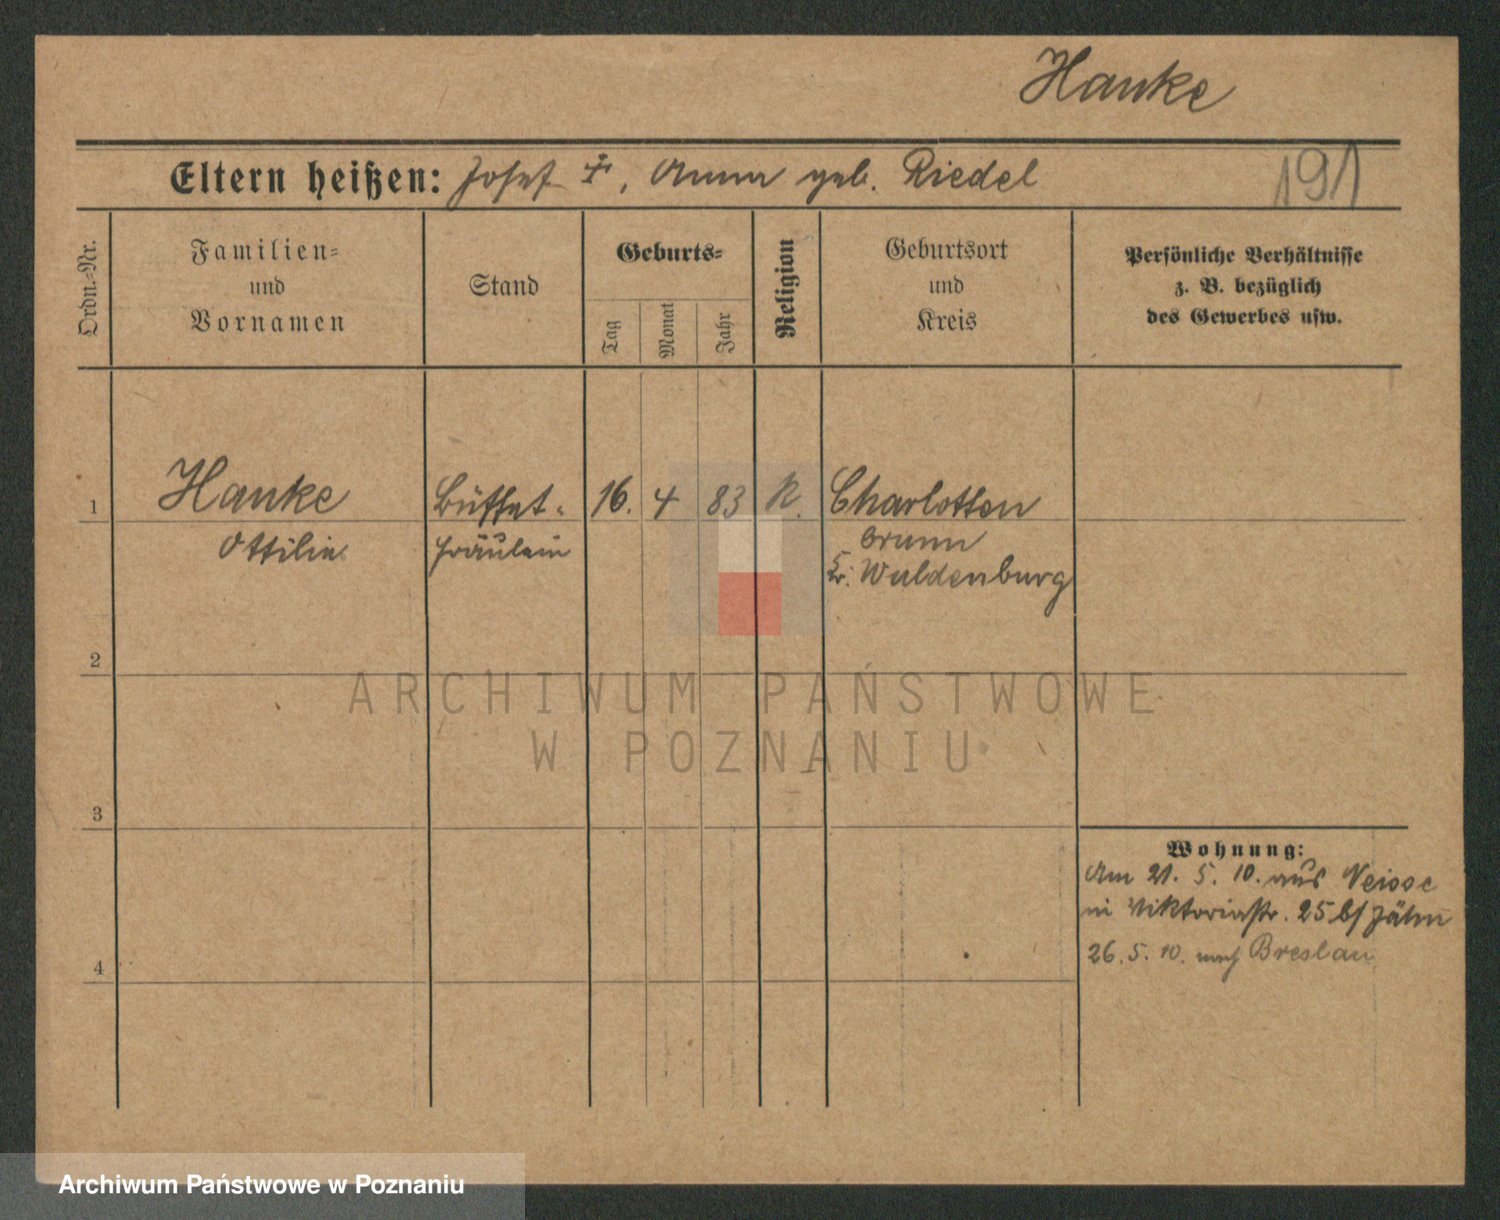 Hanke
Eltern heißen: Josef †, Anna geb. Riedel
191
Ordn.-Nr.
Familien-
und
Vornamen
Stand
Geburts-
Tag
Monat
Jahr
Religion
Geburtsort
und
Kreis
Persönliche Verhältnisse
z. B. bezüglich
des Gewerbes usw.
1
Hanke
Ottilie
Büffet-
fräulein
16.
4
83
K.
Charlotten
brunn
Kr. Waldenburg
2
3
4
Wohnung:
Am 21. 5. 10. aus Neisse
in Viktoriastr. 25 b/ Jähn
26. 5. 10. nach Breslau
ARCHIWUM PAŃSTWOWE
W POZNANIU
Archiwum Państwowe w Poznaniu